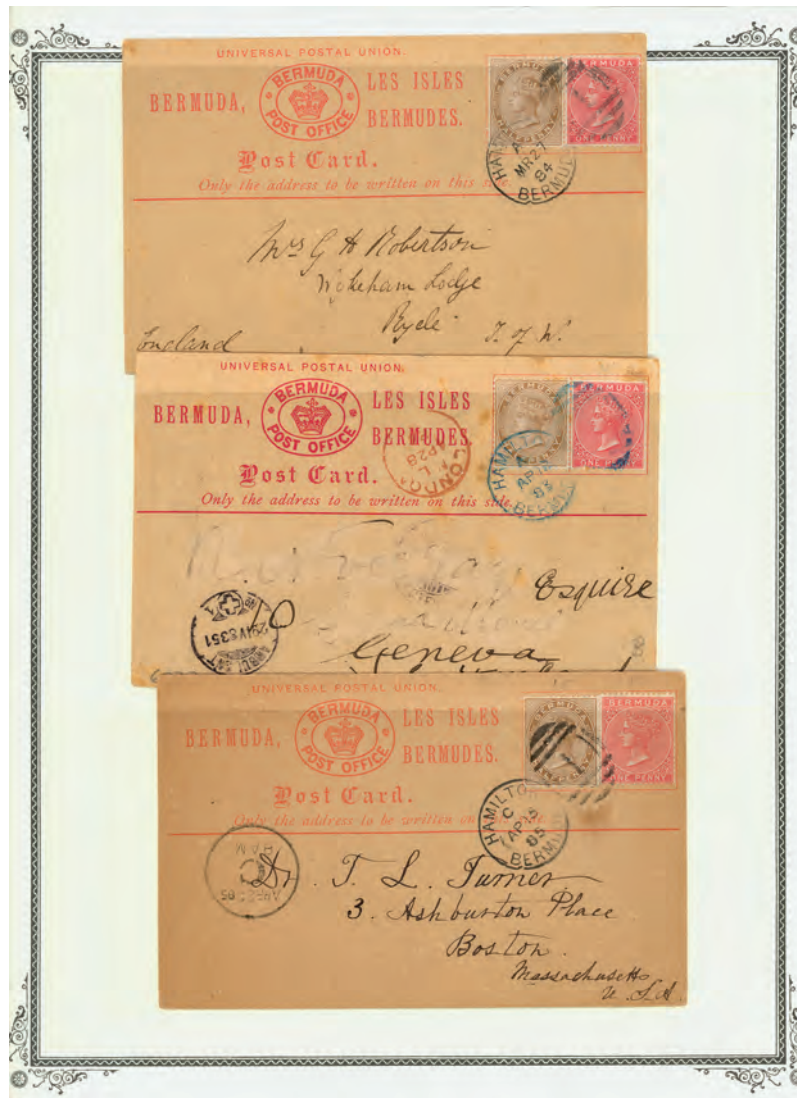 UNIVERSAL POSTAL UNION.
BERMUDA,
BERMUDA
POST OFFICE
LES ISLES
BERMUDES.
Post Card.
Only the address to be written on this side.
BERMUDA
HALFPENNY
BERMUDA
ONE PENNY
HAMILTON
A
MR 27
84
BERMUDA
Mrs G H Robertson
Lodge
Ryde I. of W.
England
UNIVERSAL POSTAL UNION.
BERMUDA,
BERMUDA
POST OFFICE
LES ISLES
BERMUDES.
Post Card.
Only the address to be written on this side.
BERMUDA
HALFPENNY
BERMUDA
ONE PENNY
HAMILTON
A
AP 12
83
BERMUDA
LONDON
L
AP 28
Esquire
AMBULANT
Geneva
UNIVERSAL POSTAL UNION.
BERMUDA,
BERMUDA
POST OFFICE
LES ISLES
BERMUDES.
Post Card.
Only the address to be written on this side.
BERMUDA
HALFPENNY
BERMUDA
ONE PENNY
1
HAMILTON
C
AP 12
85
BERMUDA
Dr. T. L. Turner
3. Ashburton Place
Boston.
Massachusetts
U.S.A.